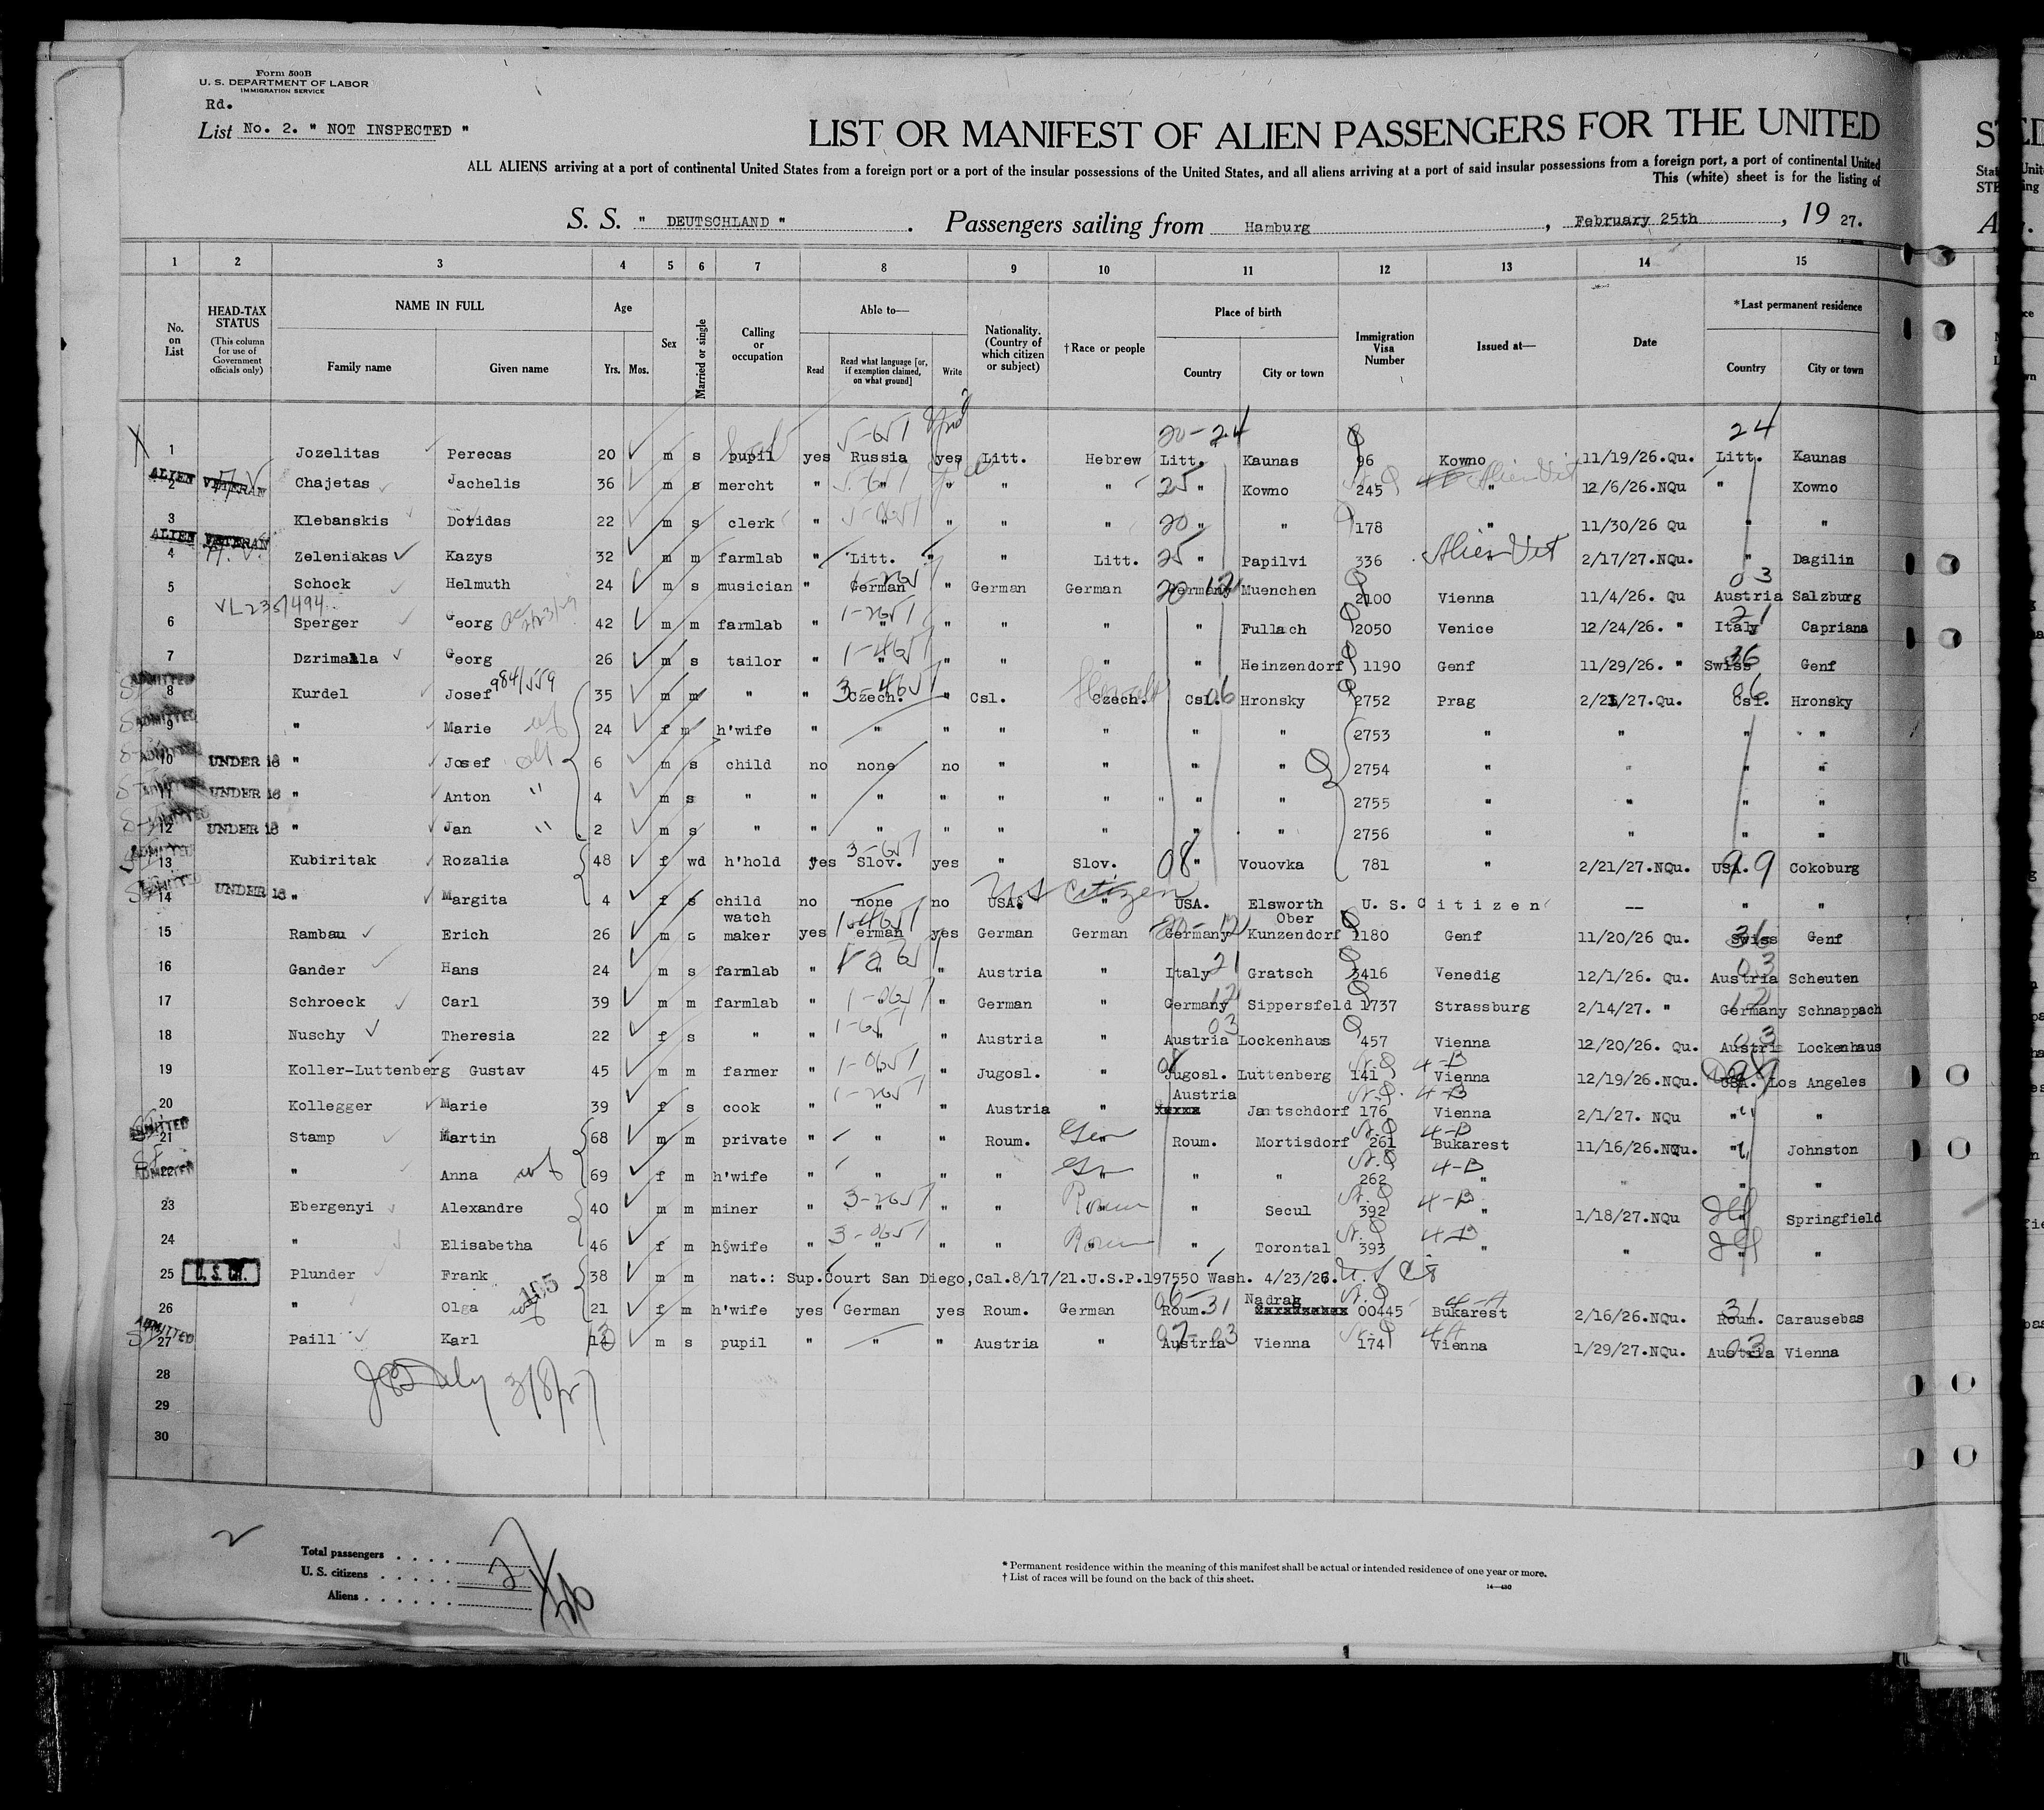 Form 500B
U. S. DEPARTMENT OF LABOR
IMMIGRATION SERVICE
Rd.
List No. 2. " NOT INSPECTED "
LIST OR MANIFEST OF ALIEN PASSENGERS FOR THE UNITED
ALL ALIENS arriving at a port of continental United States from a foreign port or a port of the insular possessions of the United States, and all aliens arriving at a port of said insular possessions from a foreign port, a port of continental United
This (white) sheet is for the listing of
S. S. " DEUTSCHLAND " . Passengers sailing from Hamburg , February 25th , 19 27.
1 2 3 4 5 6 7 8 9 10 11 12 13 14 15
No. on List
HEAD-TAX STATUS (This column for use of Government officials only)
NAME IN FULL Family name Given name
Age Yrs. Mos.
Sex
Married or single
Calling or occupation
Able to— Read Read what language [or, if exemption claimed, on what ground] Write
Nationality. (Country of which citizen or subject)
†Race or people
Place of birth Country City or town
Immigration Visa Number
Issued at—
Date
*Last permanent residence Country City or town
20-24 24
1 Jozelitas Perecas 20 m s pupil yes Russia yes Litt. Hebrew Litt. Kaunas 96 Kowno 11/19/26.Qu. Litt. Kaunas
ALIEN VETERAN
2 Chajetas Jachelis 36 m s mercht " " " " " 25 " Kowno 245 " Alien Vet 12/6/26.NQu " Kowno
3 Klebanskis Doridas 22 m s clerk " " " " " 20 " " 178 " 11/30/26 Qu " "
ALIEN VETERAN
4 Zeleniakas Kazys 32 m m farmlab " Litt. " " Litt. 25 " Papilvi 336 Alien Vet 2/17/27.NQu. " Dagilin
5 Schock Helmuth 24 m s musician " German " German German Germany Muenchen 2100 Vienna 11/4/26. Qu Austria Salzburg
6 Sperger Georg 42 m m farmlab " " " " " " Fullach 2050 Venice 12/24/26. " Italy Capriana
7 Dzrimalla Georg 26 m s tailor " " " " " " Heinzendorf 1190 Genf 11/29/26. " Swiss Genf
ADMITTED
8 Kurdel Josef 984/559 35 m m " " Czech. " Csl. Czech. Csl. Hronsky 2752 Prag Csl. Hronsky
ADMITTED
9 " Marie wf 24 f m h'wife " " " " " " " 2753 " " " "
ADMITTED
10 UNDER 16 " Josef 6 m s child no none no " " " " 2754 " " " "
11 UNDER 16 " Anton " 4 m s " " " " " " " " 2755 " " " "
12 UNDER 16 " Jan " 2 m s " " " " " " " " 2756 " " " "
ADMITTED
13 Kubiritak Rozalia 48 f wd h'hold yes Slov. yes " Slov. 08 " Vouovka 781 " 2/21/27.NQu. USA. 99 Cokoburg
US Citizen
14 UNDER 16 " Margita 4 f s child no none no USA. " USA. Elsworth U. S. Citizen -- " "
15 Rambau Erich 26 m s watch maker yes German yes German German Germany Ober Kunzendorf 1180 Genf 11/20/26 Qu. Swiss Genf
16 Gander Hans 24 m s farmlab " " " Austria " Italy 21 Gratsch 3416 Venedig 12/1/26. Qu. Austria Scheuten
17 Schroeck Carl 39 m m farmlab " " " German " Germany Sippersfeld 1737 Strassburg 2/14/27. " Germany Schnappach
18 Nuschy Theresia 22 f s " " " " Austria " Austria Lockenhaus 457 Vienna 12/20/26. Qu. Austria Lockenhaus
19 Koller-Luttenberg Gustav 45 m m farmer " " " Jugosl. " Jugosl. Luttenberg 141 Vienna 4-B 12/19/26.NQu. USA. Los Angeles
20 Kollegger Marie 39 f s cook " " " Austria " Austria Jantschdorf 176 Vienna 4-B 2/1/27. NQu " "
ADMITTED
21 Stamp Martin 68 m m private " " " Roum. Ger Roum. Mortisdorf 261 Bukarest 4-B 11/16/26.NQu. " Johnston
ADMITTED
22 " Anna wf 69 f m h'wife " " " " Ger " " 262 " 4-B " " "
23 Ebergenyi Alexandre 40 m m miner " " " " Roum " Secul 392 " 4-B 1/18/27.NQu " Springfield
24 " Elisabetha 46 f m h§wife " " " " Roum " Torontal 393 " 4-B " " "
25 U. S. CIT. Plunder Frank 38 m m nat.: Sup.Court San Diego,Cal.8/17/21.U.S.P.197550 Wash. 4/23/26.
26 " Olga wf 165 21 f m h'wife yes German yes Roum. German Roum. 31 Nadrag 00445 Bukarest 2/16/26.NQu. Roum. 31 Carausebas
ADMITTED
27 Paill Karl m s pupil " " " Austria " Austria Vienna 174 Vienna 1/29/27.NQu. Austria 03 Vienna
28
29
30
Total passengers . . . .
U. S. citizens . . . . .
Aliens . . . . . .
* Permanent residence within the meaning of this manifest shall be actual or intended residence of one year or more.
† List of races will be found on the back of this sheet.
14—430